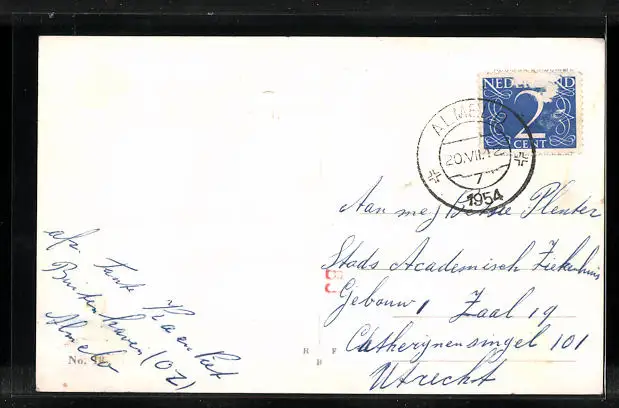 NEDERLAND
2
CENT
ALMELO
20.VII.12
7
1954
Aan mej Bennie Plenter
Stads Academisch Ziekenhuis
Gebouw 1 Zaal 19
Catherijnensingel 101
Utrecht
afz. Tante Ria en Piet
Buitenhaven (OZ)
Almelo
No.
R F
B